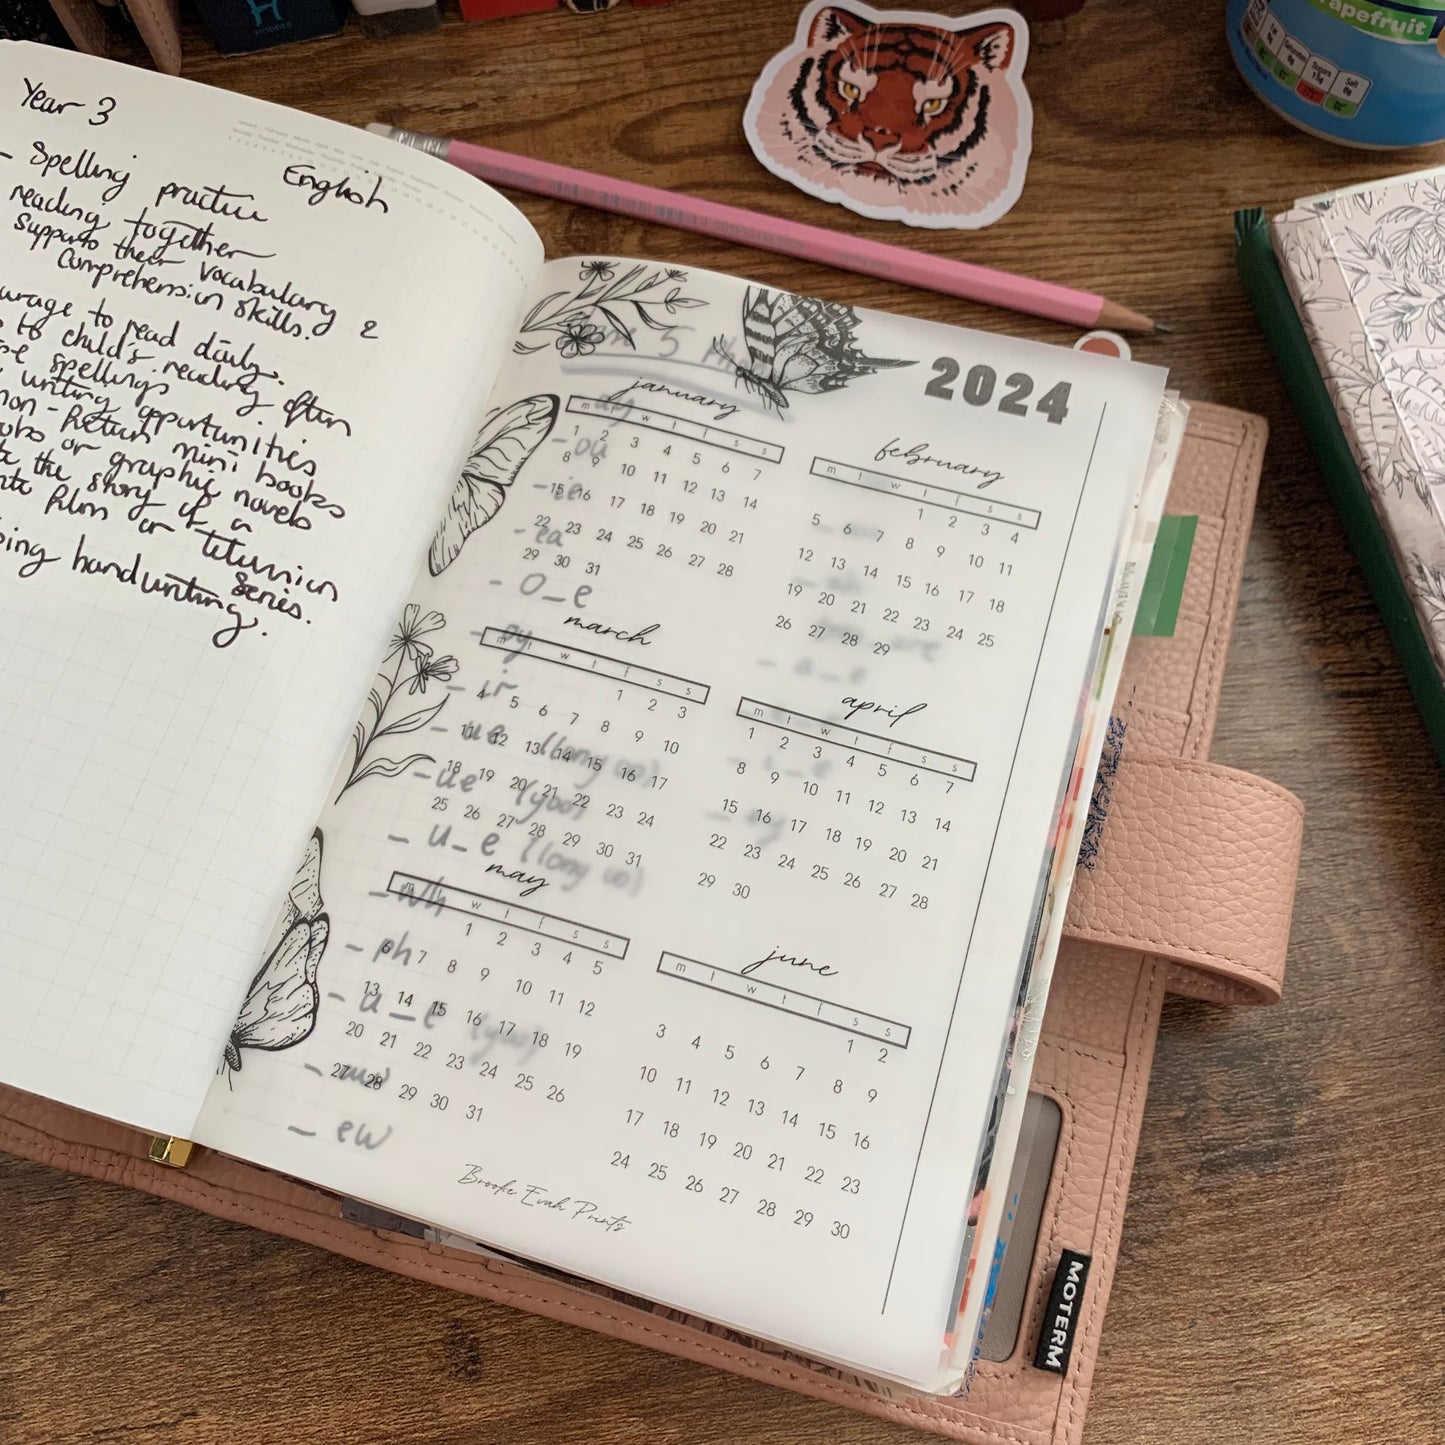 Year 3
English
- Spelling practice
reading together
supports their vocabulary &
comprehension skills.
to read daily.
to child's reading often
spellings
writing opportunities
mini books
or graphic novels
the story of a
film or television
series.
handwriting.
2024
january
m t w t f s s
1 2 3 4 5 6 7
8 9 10 11 12 13 14
15 16 17 18 19 20 21
22 23 24 25 26 27 28
29 30 31
february
m t w t f s s
1 2 3 4
5 6 7 8 9 10 11
12 13 14 15 16 17 18
19 20 21 22 23 24 25
26 27 28 29
march
m t w t f s s
1 2 3
4 5 6 7 8 9 10
11 12 13 14 15 16 17
18 19 20 21 22 23 24
25 26 27 28 29 30 31
april
m t w t f s s
1 2 3 4 5 6 7
8 9 10 11 12 13 14
15 16 17 18 19 20 21
22 23 24 25 26 27 28
29 30
may
m t w t f s s
1 2 3 4 5
6 7 8 9 10 11 12
13 14 15 16 17 18 19
20 21 22 23 24 25 26
27 28 29 30 31
june
m t w t f s s
1 2
3 4 5 6 7 8 9
10 11 12 13 14 15 16
17 18 19 20 21 22 23
24 25 26 27 28 29 30
- ou
- ea
- o_e
- oy
- ir
- ue (long oo)
- ue (yoo)
- u_e (long oo)
- wh
- ph
- u_e (yoo)
- ew
- a_e
Brooke Evah Prints
MOTERM